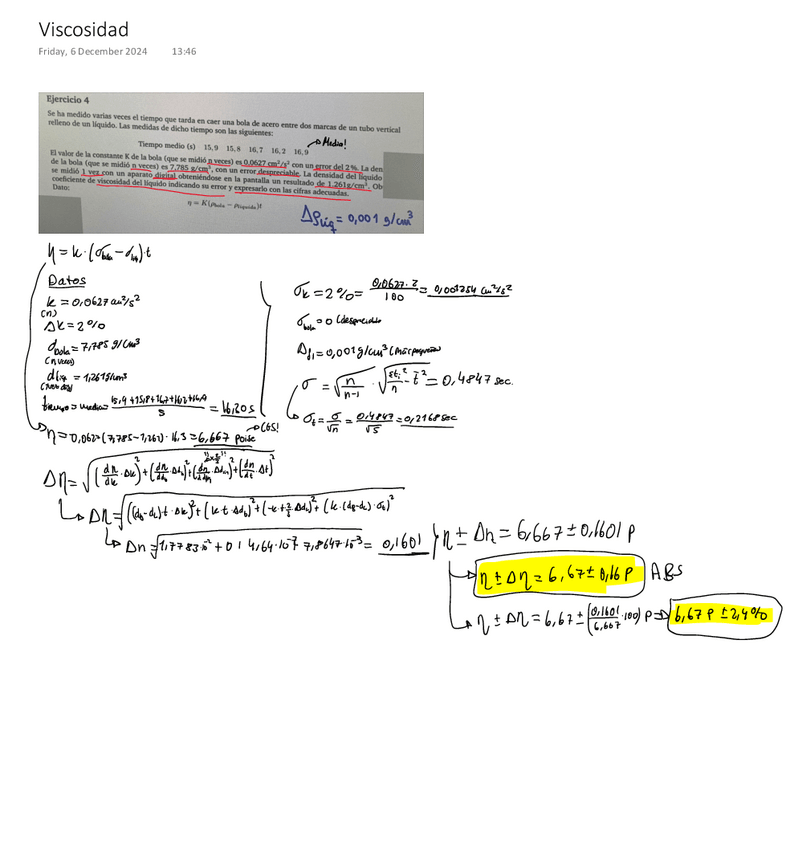 Viscosidad
Friday, 6 December 2024 13:46
Ejercicio 4
Se ha medido varias veces el tiempo que tarda en caer una bola de acero entre dos marcas de un tubo vertical
relleno de un líquido. Las medidas de dicho tiempo son las siguientes:
Media!
Tiempo medio (s) 15,9 15,8 16,7 16,2 16,9
El valor de la constante K de la bola (que se midió n veces) es 0,0627 cm²/s² con un error del 2%. La den
de la bola (que se midió n veces) es 7,785 g/cm³, con un error despreciable. La densidad del líquido
se midió 1 vez con un aparato digital obteniéndose en la pantalla un resultado de 1,261g/cm³. Ob
coeficiente de viscosidad del líquido indicando su error y expresarlo con las cifras adecuadas.
Dato:
η = K(ρbola − ρlíquido)t
Δρlíq = 0,001 g/cm³
η = k·(σbola − dliq)t
Datos
k = 0,0627 cm²/s²
(n)
Δk = 2%
dbola = 7,785 g/cm³
(n veces)
dliq = 1,261g/cm³
tiempo = media = = 16,30s
σk = 2% = 0,0627·2/100 = 0,001254 cm²/s²
σbola = 0 (despreciable
= 0,001 g/cm³ (más pequeño)
σ = √(n/(n−1)) · √(Σti²/n − t̄²) = 0,4847 sec.
σt = σ/√n = 0,4847/√5 = 0,2168 sec
CGS!
= 6,667 Poise
Δη = √((dη/dk · Δk)² + (dη/ddb · Δdb)² + (dη/ddliq · Δdliq)² + (dη/dt · Δt)²
Δη = √((db−dL)·t·Δk)² + (k·t·Δdb)² + + (k·(db−dL)·σt)²
Δη = = 0,1601
η ± Δη = 6,667 ± 0,1601 P
η ± Δη = 6,67 ± 0,16 P ABS
η ± Δη = 6,67 ± (0,1601/6,667 · 100) P ⇒ 6,67 P ± 2,4%